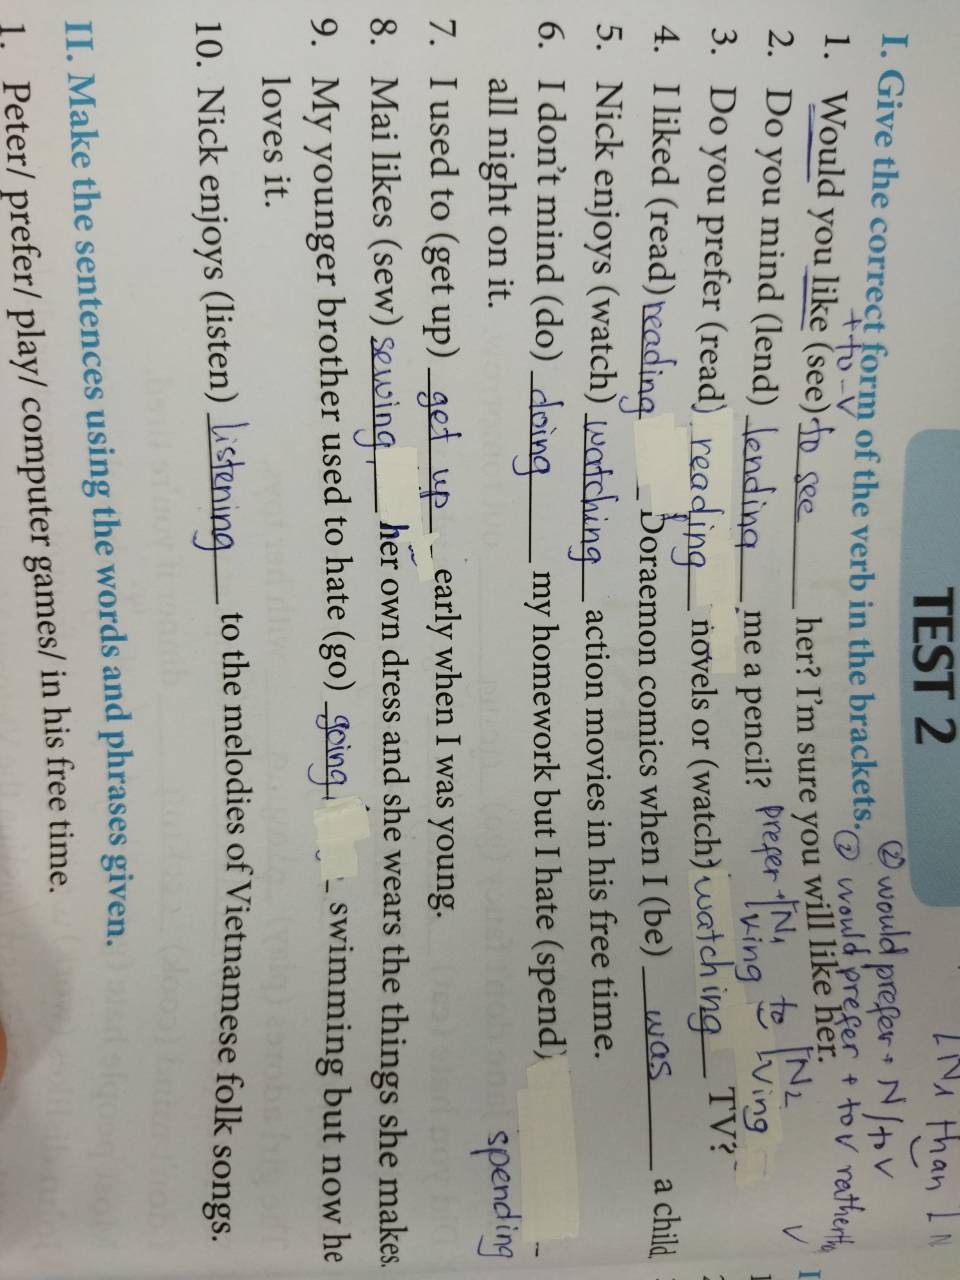 [N1 than [N
② would prefer + N/to V
② would prefer + to V rather th
TEST 2
I. Give the correct form of the verb in the brackets.
+ to - V
1. Would you like (see) to see her? I'm sure you will like her.
2. Do you mind (lend) lending me a pencil? prefer + [N1 to [N2
Ving Ving
3. Do you prefer (read) reading novels or (watch) watching TV?
4. I liked (read) reading Doraemon comics when I (be) was a child.
5. Nick enjoys (watch) watching action movies in his free time.
6. I don't mind (do) doing my homework but I hate (spend)
all night on it. spending
7. I used to (get up) get up early when I was young.
8. Mai likes (sew) sewing her own dress and she wears the things she makes.
9. My younger brother used to hate (go) going swimming but now he
loves it.
10. Nick enjoys (listen) listening to the melodies of Vietnamese folk songs.
II. Make the sentences using the words and phrases given.
1. Peter/ prefer/ play/ computer games/ in his free time.